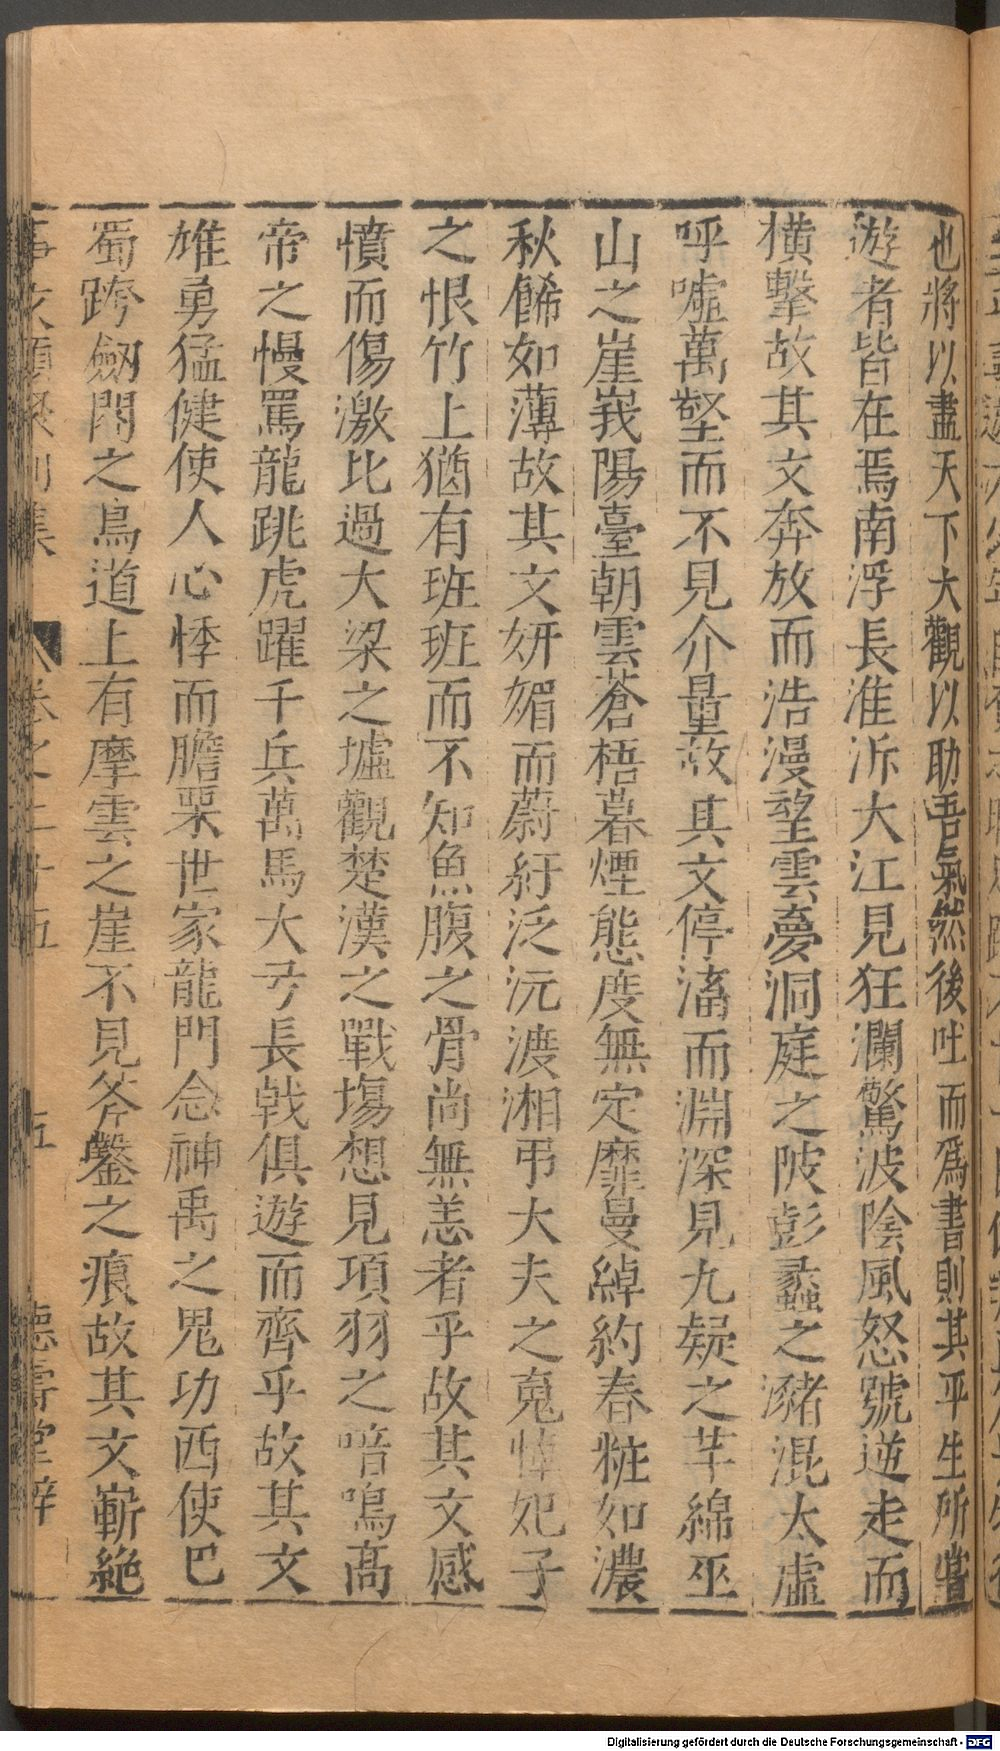 也將以盡天下大觀以助吾氣然後吐而爲書則其平生所嘗
遊者皆在焉南浮長淮泝大江見狂瀾驚波陰風怒號逆走而
横擊故其文奔放而浩漫望雲夢洞庭之陂彭蠡之瀦混太虛
呼噓萬壑而不見介量故其文停滀而淵深見九疑之芊綿巫
山之崖峩陽臺朝雲蒼梧暮煙態度無定靡曼綽約春粧如濃
秋餙如薄故其文妍媚而蔚紆泛沅渡湘弔大夫之䰟悼妃子
之恨竹上猶有班班而不知魚腹之骨尚無恙者乎故其文感
憤而傷激比過大梁之墟觀楚漢之戰塲想見項羽之喑鳴高
帝之慢罵龍跳虎躍千兵萬馬大弓長戟俱遊而齊乎故其文
雄勇猛健使人心悸而膽栗世家龍門念神禹之鬼功西使巴
蜀跨劒閣之鳥道上有摩雲之崖不見斧鑿之痕故其文嶄絶
事文類聚別集 卷之二十五 五 德壽堂梓
Digitalisierung gefördert durch die Deutsche Forschungsgemeinschaft - DFG